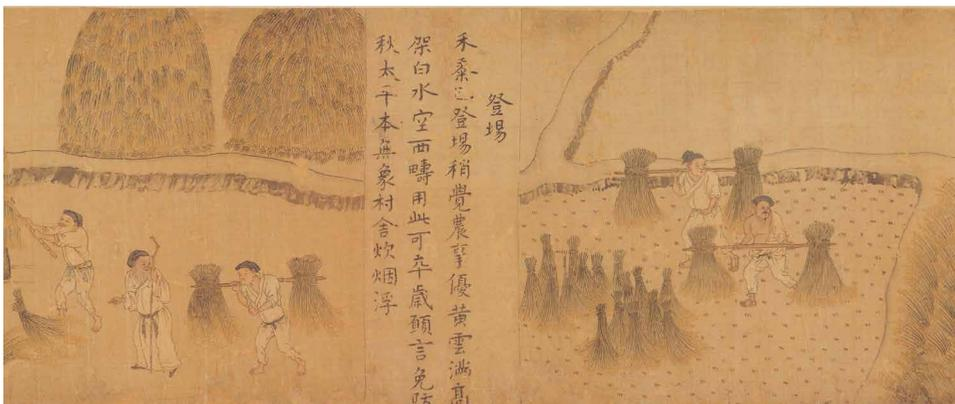 登場
禾黍已登場稍覺農事優黃雲滿高
架白水空西疇用此可卒歲願言免防
秋太平本無象村舍炊烟浮